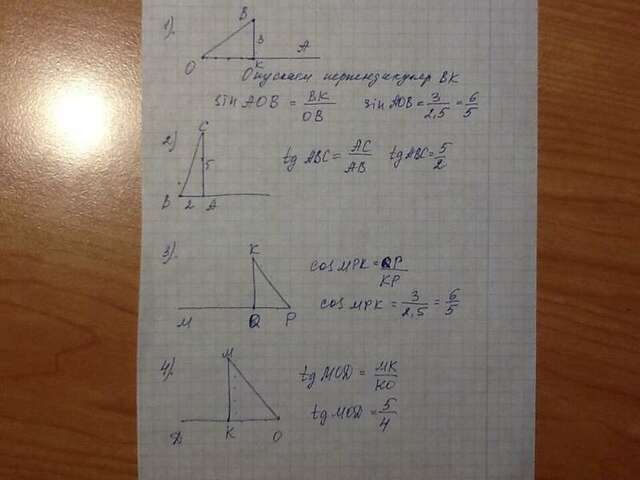 1).
B
3
O K A
Опускаем перпендикуляр BK
sin AOB = BK/OB sin AOB = 3/2,5 = 6/5
2)
C
5
B 2 A
tg ABC = AC/AB tg ABC = 5/2
3).
K
M Q P
cos MPK = QP/KP
cos MPK = 3/2,5 = 6/5
4).
M
D K O
tg MOD = MK/KO
tg MOD = 5/4